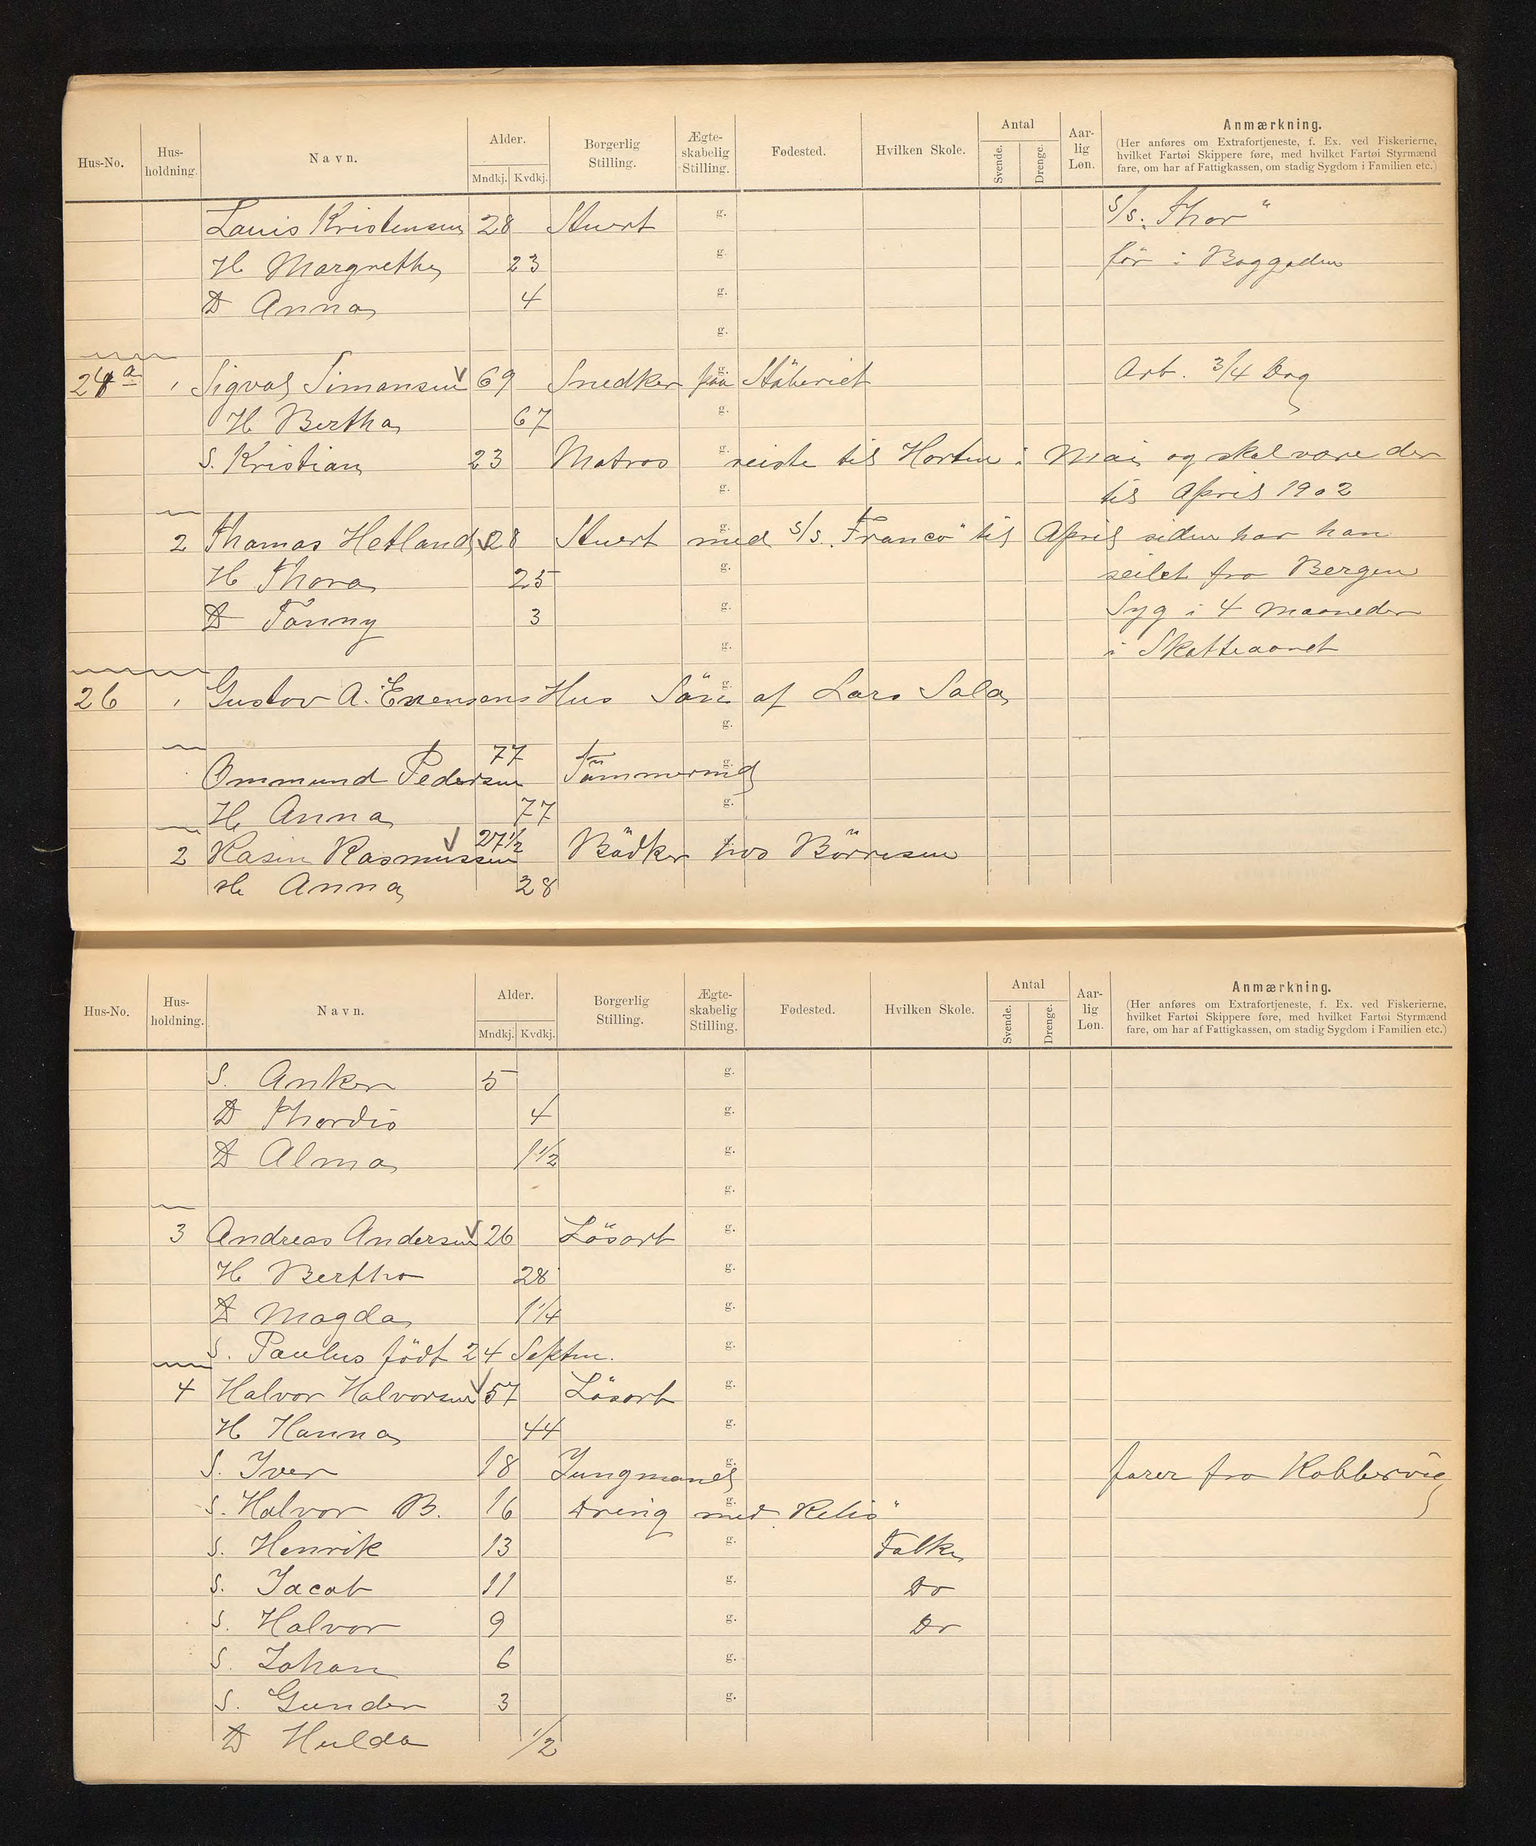 Hus-No. Hus-holdning. Navn. Alder. Mndkj. Kvdkj. Borgerlig Stilling. Ægte-skabelig Stilling. Fødested. Hvilken Skole. Antal Svende. Drenge. Aar-lig Løn. Anmærkning.
(Her anføres om Extrafortjeneste, f. Ex. ved Fiskerierne, hvilket Fartøi Skippere føre, med hvilket Fartøi Styrmænd fare, om har af Fattigkassen, om stadig Sygdom i Familien etc.)
Louis Kristensen 28 Stuert g. S/S. Thor"
H Margrethe 23 g. før i Baggaden
D Anna 4 g.
g.
24 a 1 Sigval Simonsen 69 Snedker paa Støberiet g. Arb. 3/4 Dag
H Bertha 67 g.
S. Kristian 23 Matros g. reiste til Horten i Mai og skal være der
g. til April 1902
2 Thomas Hetland 28 Stuert med S/S. "Franco" til April siden har han
H Thora 25 g. seilet fra Bergen
D Fanny 3 g. Syg i 4 Maaneder
g. i Skatteaaret
26 1 Gustav A. Evensens Hus Søn af Lars Sala
g.
Ommund Pedersen 77 Tømmermd g.
H Anna 77 g.
2 Rasm Rasmussen 27 1/2 Bødker hos Børresen
H Anna 28
Hus-No. Hus-holdning. Navn. Alder. Mndkj. Kvdkj. Borgerlig Stilling. Ægte-skabelig Stilling. Fødested. Hvilken Skole. Antal Svende. Drenge. Aar-lig Løn. Anmærkning.
(Her anføres om Extrafortjeneste, f. Ex. ved Fiskerierne, hvilket Fartøi Skippere føre, med hvilket Fartøi Styrmænd fare, om har af Fattigkassen, om stadig Sygdom i Familien etc.)
S. Anker 5 g.
D Thordis 4 g.
D Alma 1 1/2 g.
g.
3 Andreas Andersen 26 Løsarb g.
H Bertha 28 g.
D Magda 1 1/4 g.
S. Paulus født 24 Septm. g.
4 Halvor Halvorsen 57 Løsarb g.
H Hanna 44 g.
S. Iver 18 Jungmand g. farer fra Kobbervig
S. Halvor B. 16 Dreng med "Relis" g.
S. Henrik 13 g. Folke
S. Jacob 11 g. Do
S. Halvor 9 g. Do
S. Johan 6 g.
S. Gunder 3 g.
D Hulda 1/2